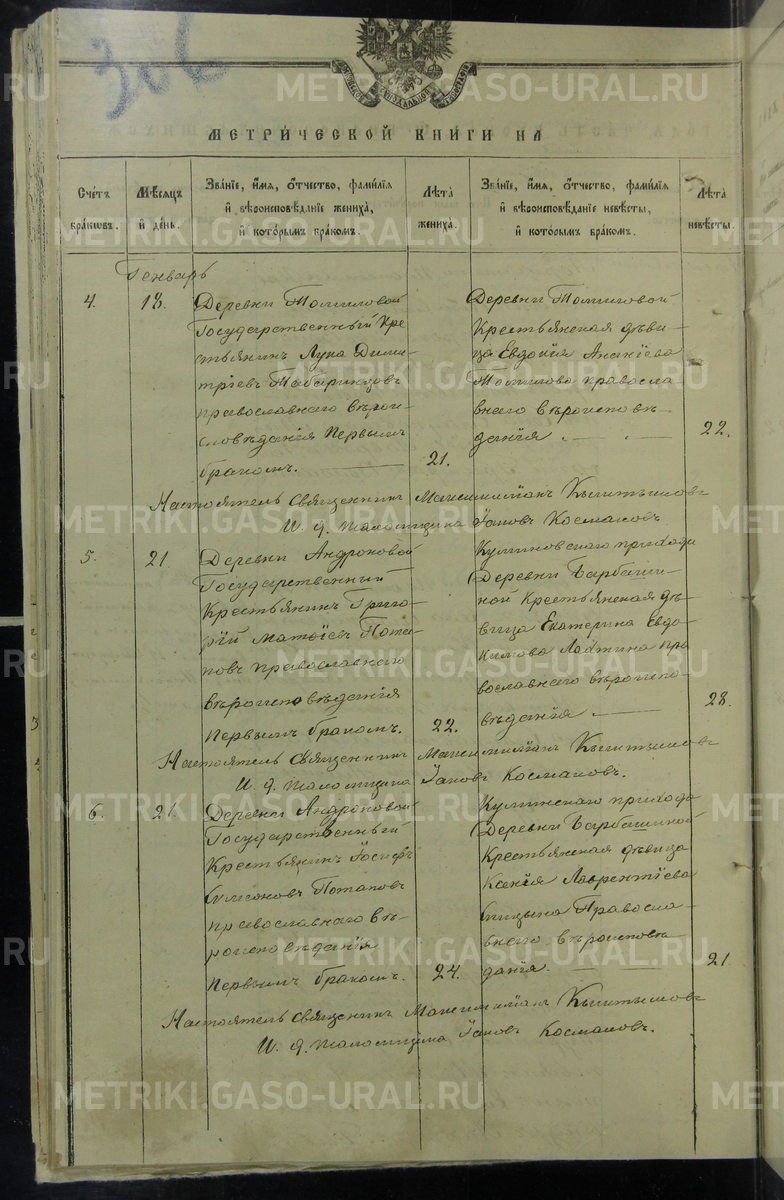 306
МЕТРИЧЕСКОЙ КНИГИ НА
Счетъ браковъ.
Мѣсяцъ и день.
Званіе, имя, отчество, фамилія
и вѣроисповѣданіе жениха,
и которымъ бракомъ.
Лѣта жениха.
Званіе, имя, отчество, фамилія
и вѣроисповѣданіе невѣсты,
и которымъ бракомъ.
Лѣта невѣсты.
Генварь
4.
13.
Деревни Томиловой
Государственный Кре
стьянинъ Лука Дими-
тріевъ Табаринцовъ
православнаго вѣрои-
сповѣданія Первымъ
бракомъ.
21.
Деревни Томиловой
Крестьянская дѣви-
ца Евдокія Ананіева
Томилова правосла-
внаго вѣроисповѣ-
данія
22.
Настоятель Священникъ Максимиліанъ
И. д. Псаломщика Іаковъ Космаковъ
5.
21.
Деревни Андроновой
Государственный
Крестьянинъ Григо-
рій Матѳіевъ Пота-
повъ православнаго
вѣроисповѣданія
Первымъ бракомъ.
22.
прихода
Деревни Барбаши-
ной Крестьянская дѣ-
вица Екатерина Евдо-
кимова Лахтина пра
вославнаго вѣроиспо-
вѣданія
28.
Настоятель Священникъ Максимиліанъ
И. д. Псаломщика Іаковъ Космаковъ.
6.
21.
Деревни Андроновой
Государственный
Крестьянинъ Іосифъ
Симеоновъ Потаповъ
православнаго вѣ-
роисповѣданія
Первымъ бракомъ.
24.
прихода
Деревни Барбашиной
Крестьянская дѣвица
Ксенія Лаврентіева
Спицына Правосла-
внаго вѣроисповѣ
данія.
21.
Настоятель Священникъ Максимиліанъ
И. д. Псаломщика Іаковъ Космаковъ.
METRIKI.GASO-URAL.RU